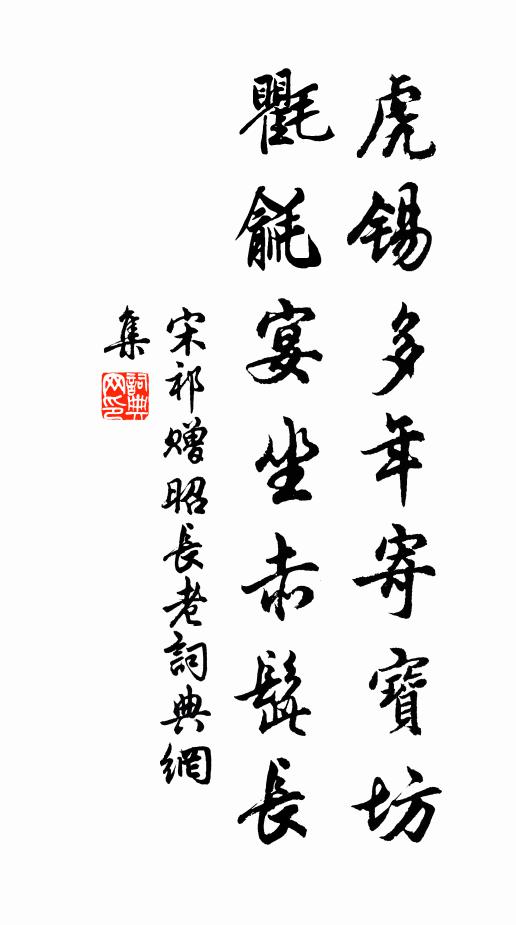 虎锡多年寄寶坊
氍毹宴坐赤髭長
宋祁贈昭長老詞典網
集
詞典
网印